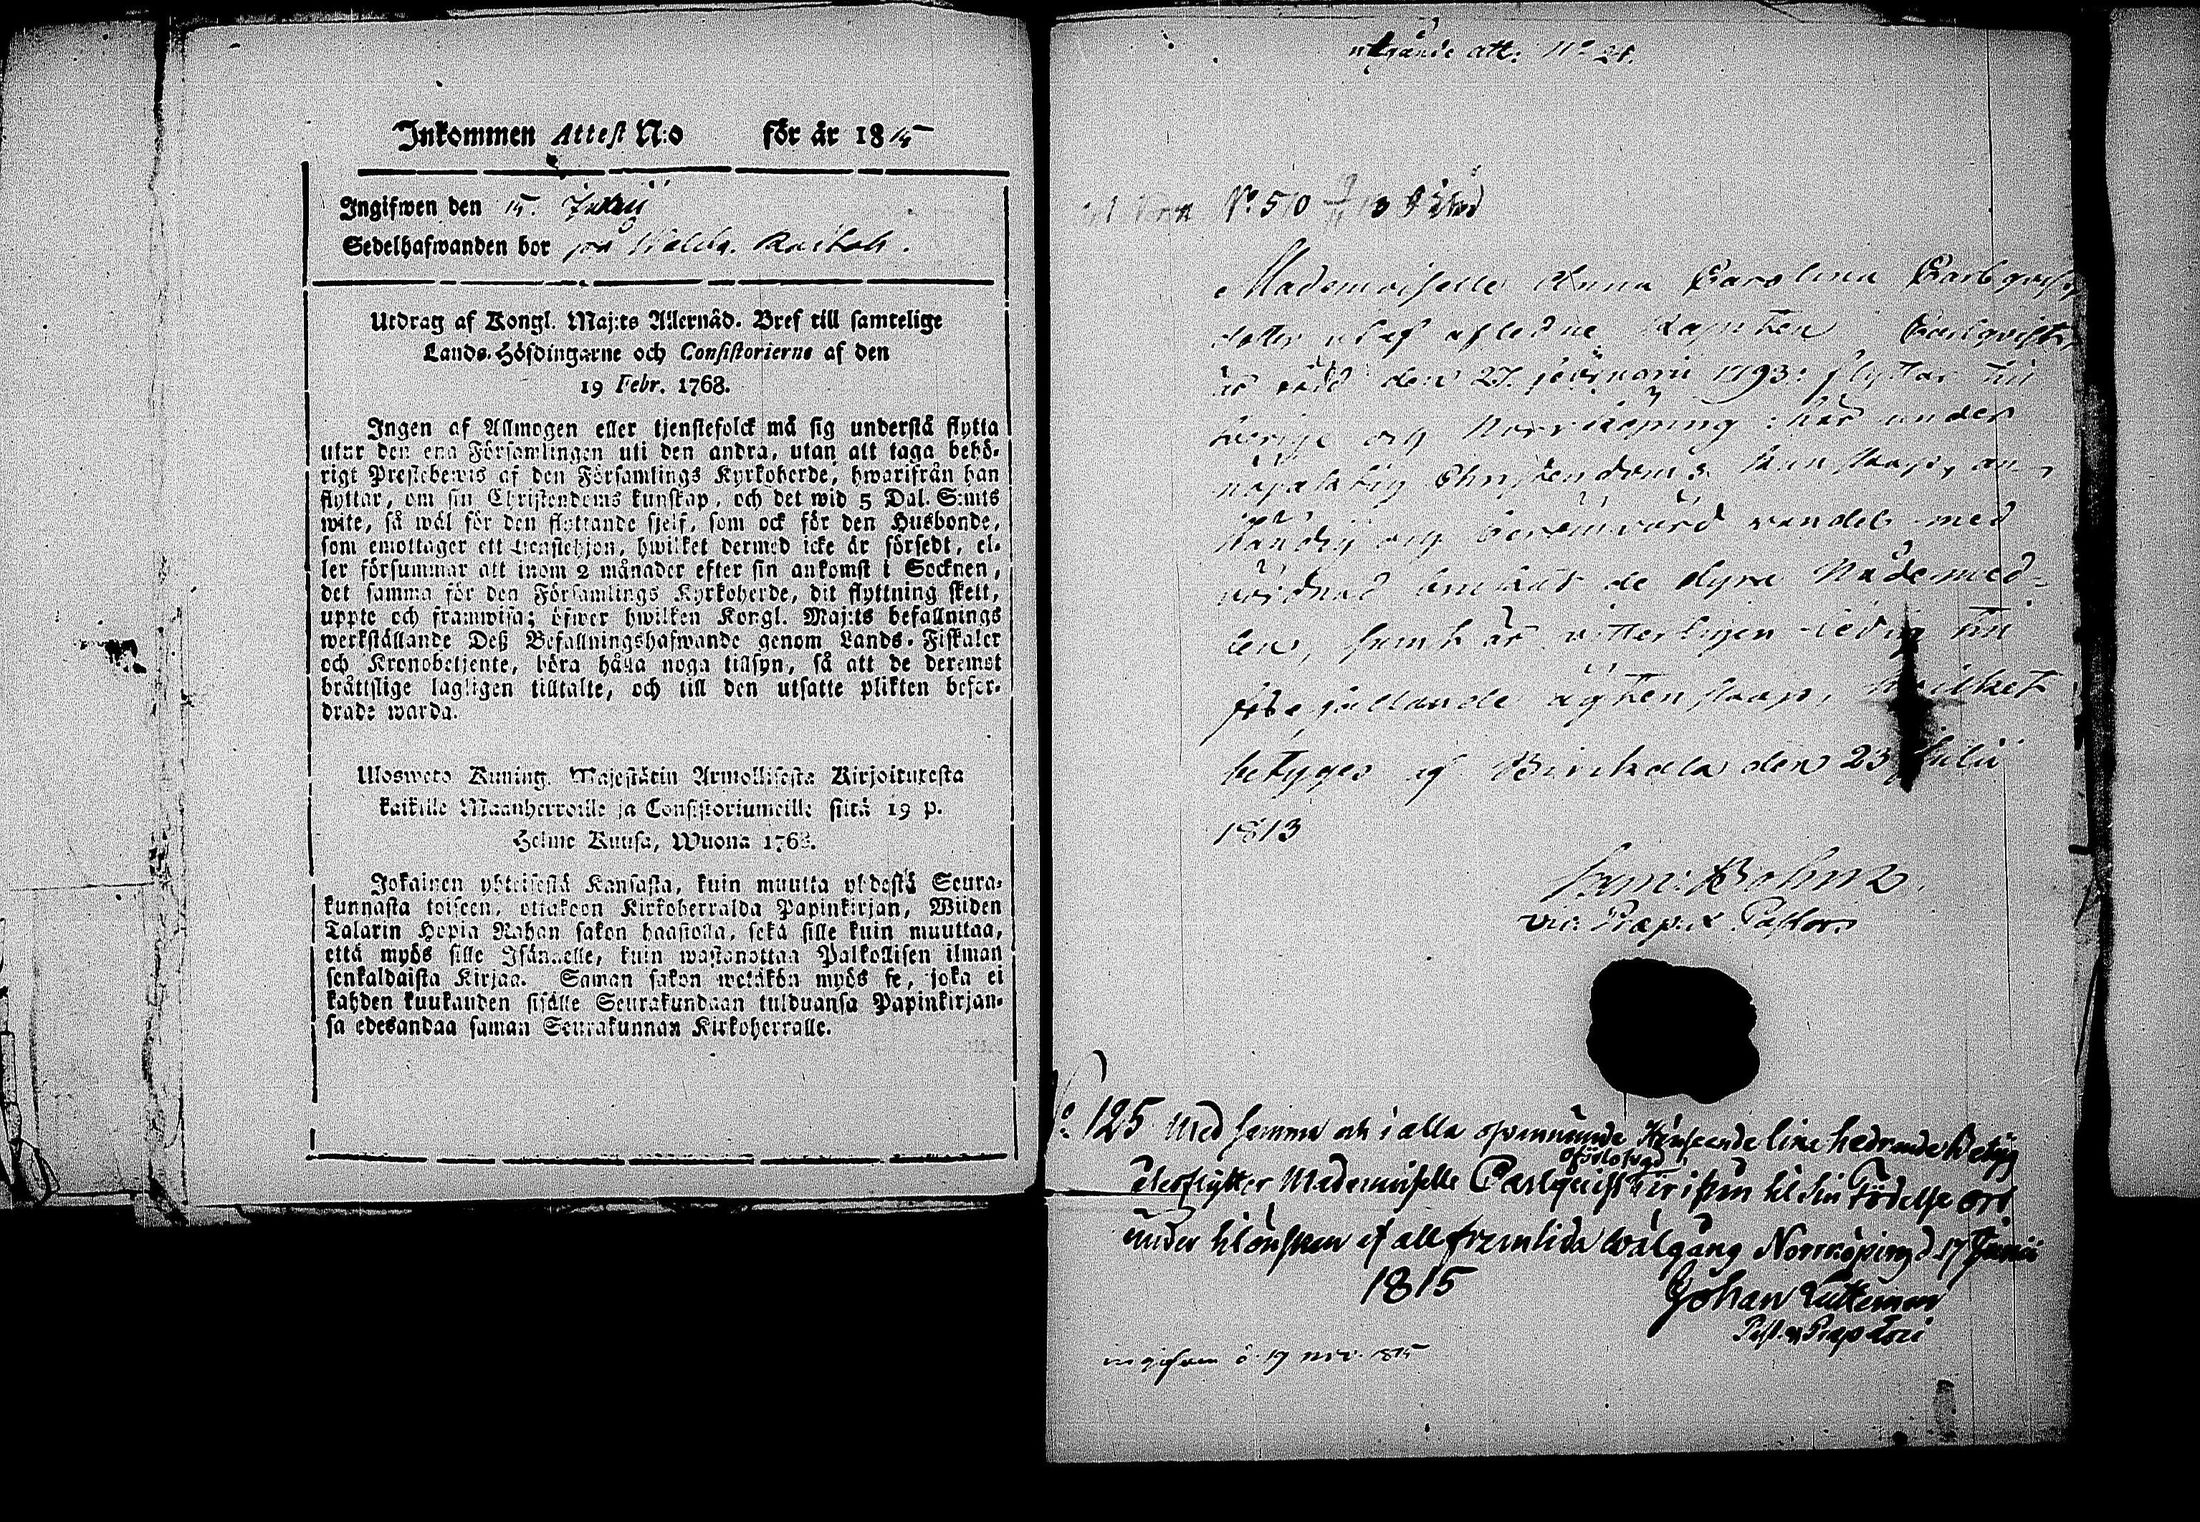 Inkommen Attest N:o för år 1815
Ingifwen den 15. Julij
Sedelhafwanden bor på
Utdrag af Kongl. Maj:ts Allernåd. Bref till samtelige
Lands-Höfdingarne och Consistorierne af den
19 Febr. 1768.
Ingen af Allmogen eller tjenstefolck må sig understå flytta
utur den ena Församlingen uti den andra, utan att taga behö-
rigt Prestebewis af den Församlings Kyrkoherde, hwarifrån han
flyttar, om sin Christendoms kunskap, och det wid 5 Dal. S:mts
wite, så wäl för den flyttande sjelf, som ock för den Husbonde,
som emottager ett tienstehjon, hwilket dermed icke är försedt, el-
ler försummar att inom 2 månader efter sin ankomst i Socknen,
det samma för den Församlings Kyrkoherde, dit flyttning skett,
uppte och framwisa; öfwer hwilken Kongl. Maj:ts befallnings
werkställande Deß Befallningshafwande genom Lands-Fiskaler
och Kronobetjente, böra hålla noga tillsyn, så att de deremot
bråttslige lagligen tilltalte, och till den utsatte plikten befor-
drade warda.
Ulosweto Kuning. Majestätin Armollisesta Kirjoituxesta
kaikille Maanherroille ja Consistoriumeille siitä 19 p.
Helme Kuusa, Wuona 1768.
Jokainen yhteisestä Kansasta, kuin muutta yhdestä Seura-
kunnasta toiseen, ottakoon Kirkoherralda Papinkirjan, Wiiden
Talarin Hopia Rahan sakon haastolla, sekä sille kuin muuttaa,
että myös sille Isännelle, kuin wastanottaa Palkollisen ilman
senkaldaista Kirjaa. Saman sakon wetäkön myös se, joka ei
kahden kuukauden sisälle Seurakundaan tulduansa Papinkirjan-
sa edesandaa saman Seurakunnan Kirkoherralle.
utgånde att. N:o 21.
N:o 510
Mademoiselle Anna Carolina Carlqvist,
dotter utaf afledne Kapten Carlqvist,
är född den 27. januarii 1793: flyttar till
Sverige och Norrköping: har under
Christendoms kunskap, an-
ständig och berömvärd vandel med
vördnad brukat de dyra Nådemed-
len, samt är vitterligen ledig till
förefallande ägtenskap, hvilket
betyges af Birckala den 23 Julii
1813
Sam: Bohm
vic: Præp. & Pastor.
N:o 125 Med samma och i alla ofvannämde Hänseende lika hedrande Betyg
återflyttar Mademoiselle Carlquist til sin Födelse ort
under tilönskan af all framtida wälgång Norrköping d. 17 Junii
1815
Johan
ingifven d. 19 nov. 1815